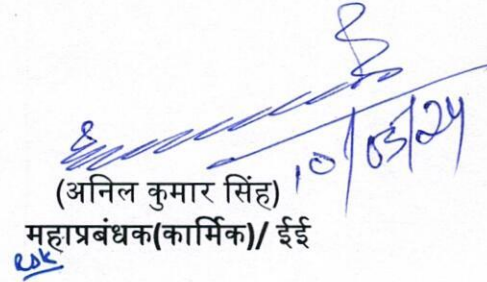 10/05/24
(अनिल कुमार सिंह)
महाप्रबंधक(कार्मिक)/ ईई